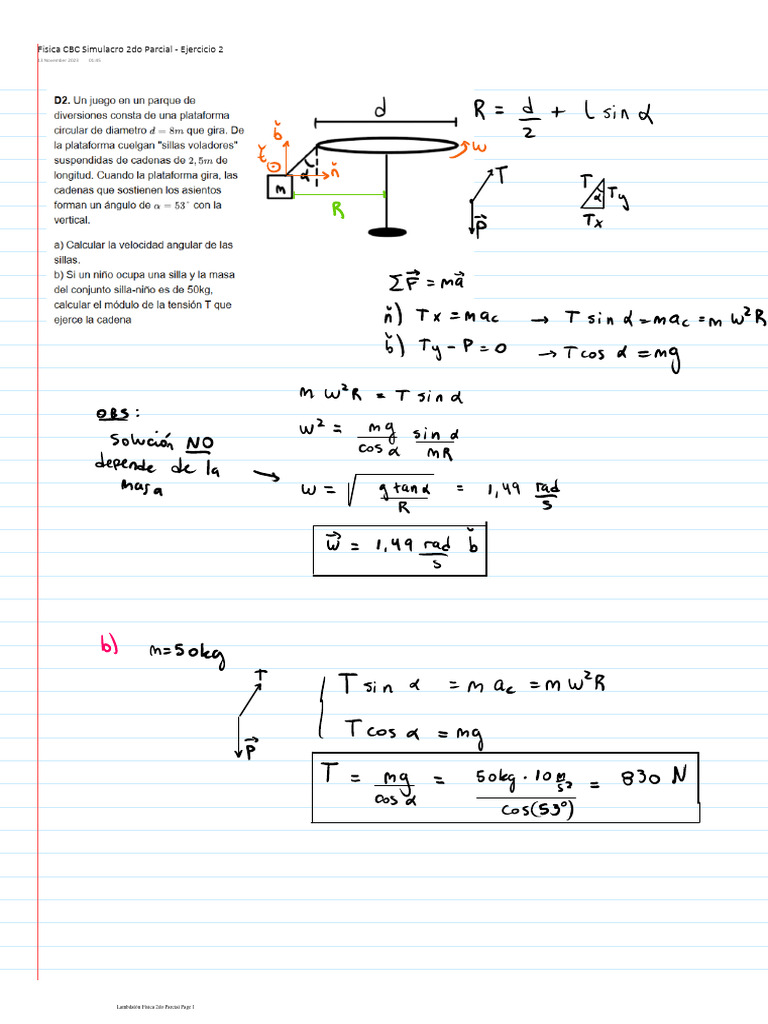 Fisica CBC Simulacro 2do Parcial - Ejercicio 2
13 November 2023 01:45
D2. Un juego en un parque de
diversiones consta de una plataforma
circular de diametro d = 8m que gira. De
la plataforma cuelgan "sillas voladores"
suspendidas de cadenas de 2,5m de
longitud. Cuando la plataforma gira, las
cadenas que sostienen los asientos
forman un ángulo de α = 53° con la
vertical.
a) Calcular la velocidad angular de las
sillas.
b) Si un niño ocupa una silla y la masa
del conjunto silla-niño es de 50kg,
calcular el módulo de la tensión T que
ejerce la cadena
d
b̌
ť
ň
α
m
R
w
R = d/2 + l sin α
T
P⃗
T
α
Ty
Tx
ΣF⃗ = ma⃗
ň) Tx = mac → T sin α = mac = m w²R
b̌) Ty - P = 0 → T cos α = mg
m w²R = T sin α
w² = mg/cos α sin α/mR
OBS:
Solución NO
depende de la
masa →
w = √(g tan α/R) = 1,49 rad/s
w⃗ = 1,49 rad/s b̌
b) m=50kg
T
P⃗
T sin α = m ac = m w²R
T cos α = mg
T = mg/cos α = 50kg · 10 m/s²/cos(53°) = 830 N
Lambdatón Física 2do Parcial Page 1